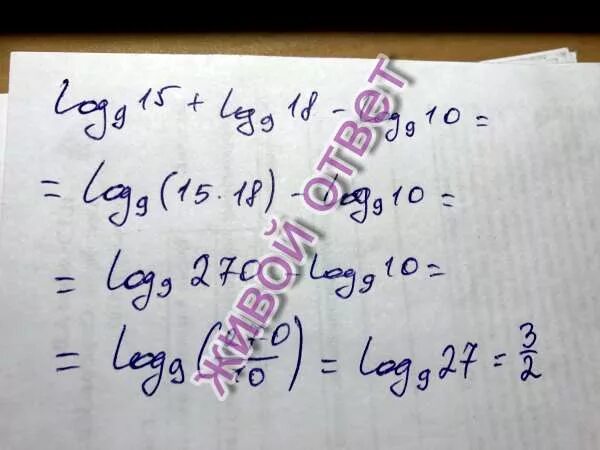 log₉ 15 + log₉ 18 - log₉ 10 =
= log₉ (15 · 18) - log₉ 10 =
= log₉ 270 - log₉ 10 =
= log₉ (270/10) = log₉ 27 = 3/2
ЖИВОЙ ОТВЕТ